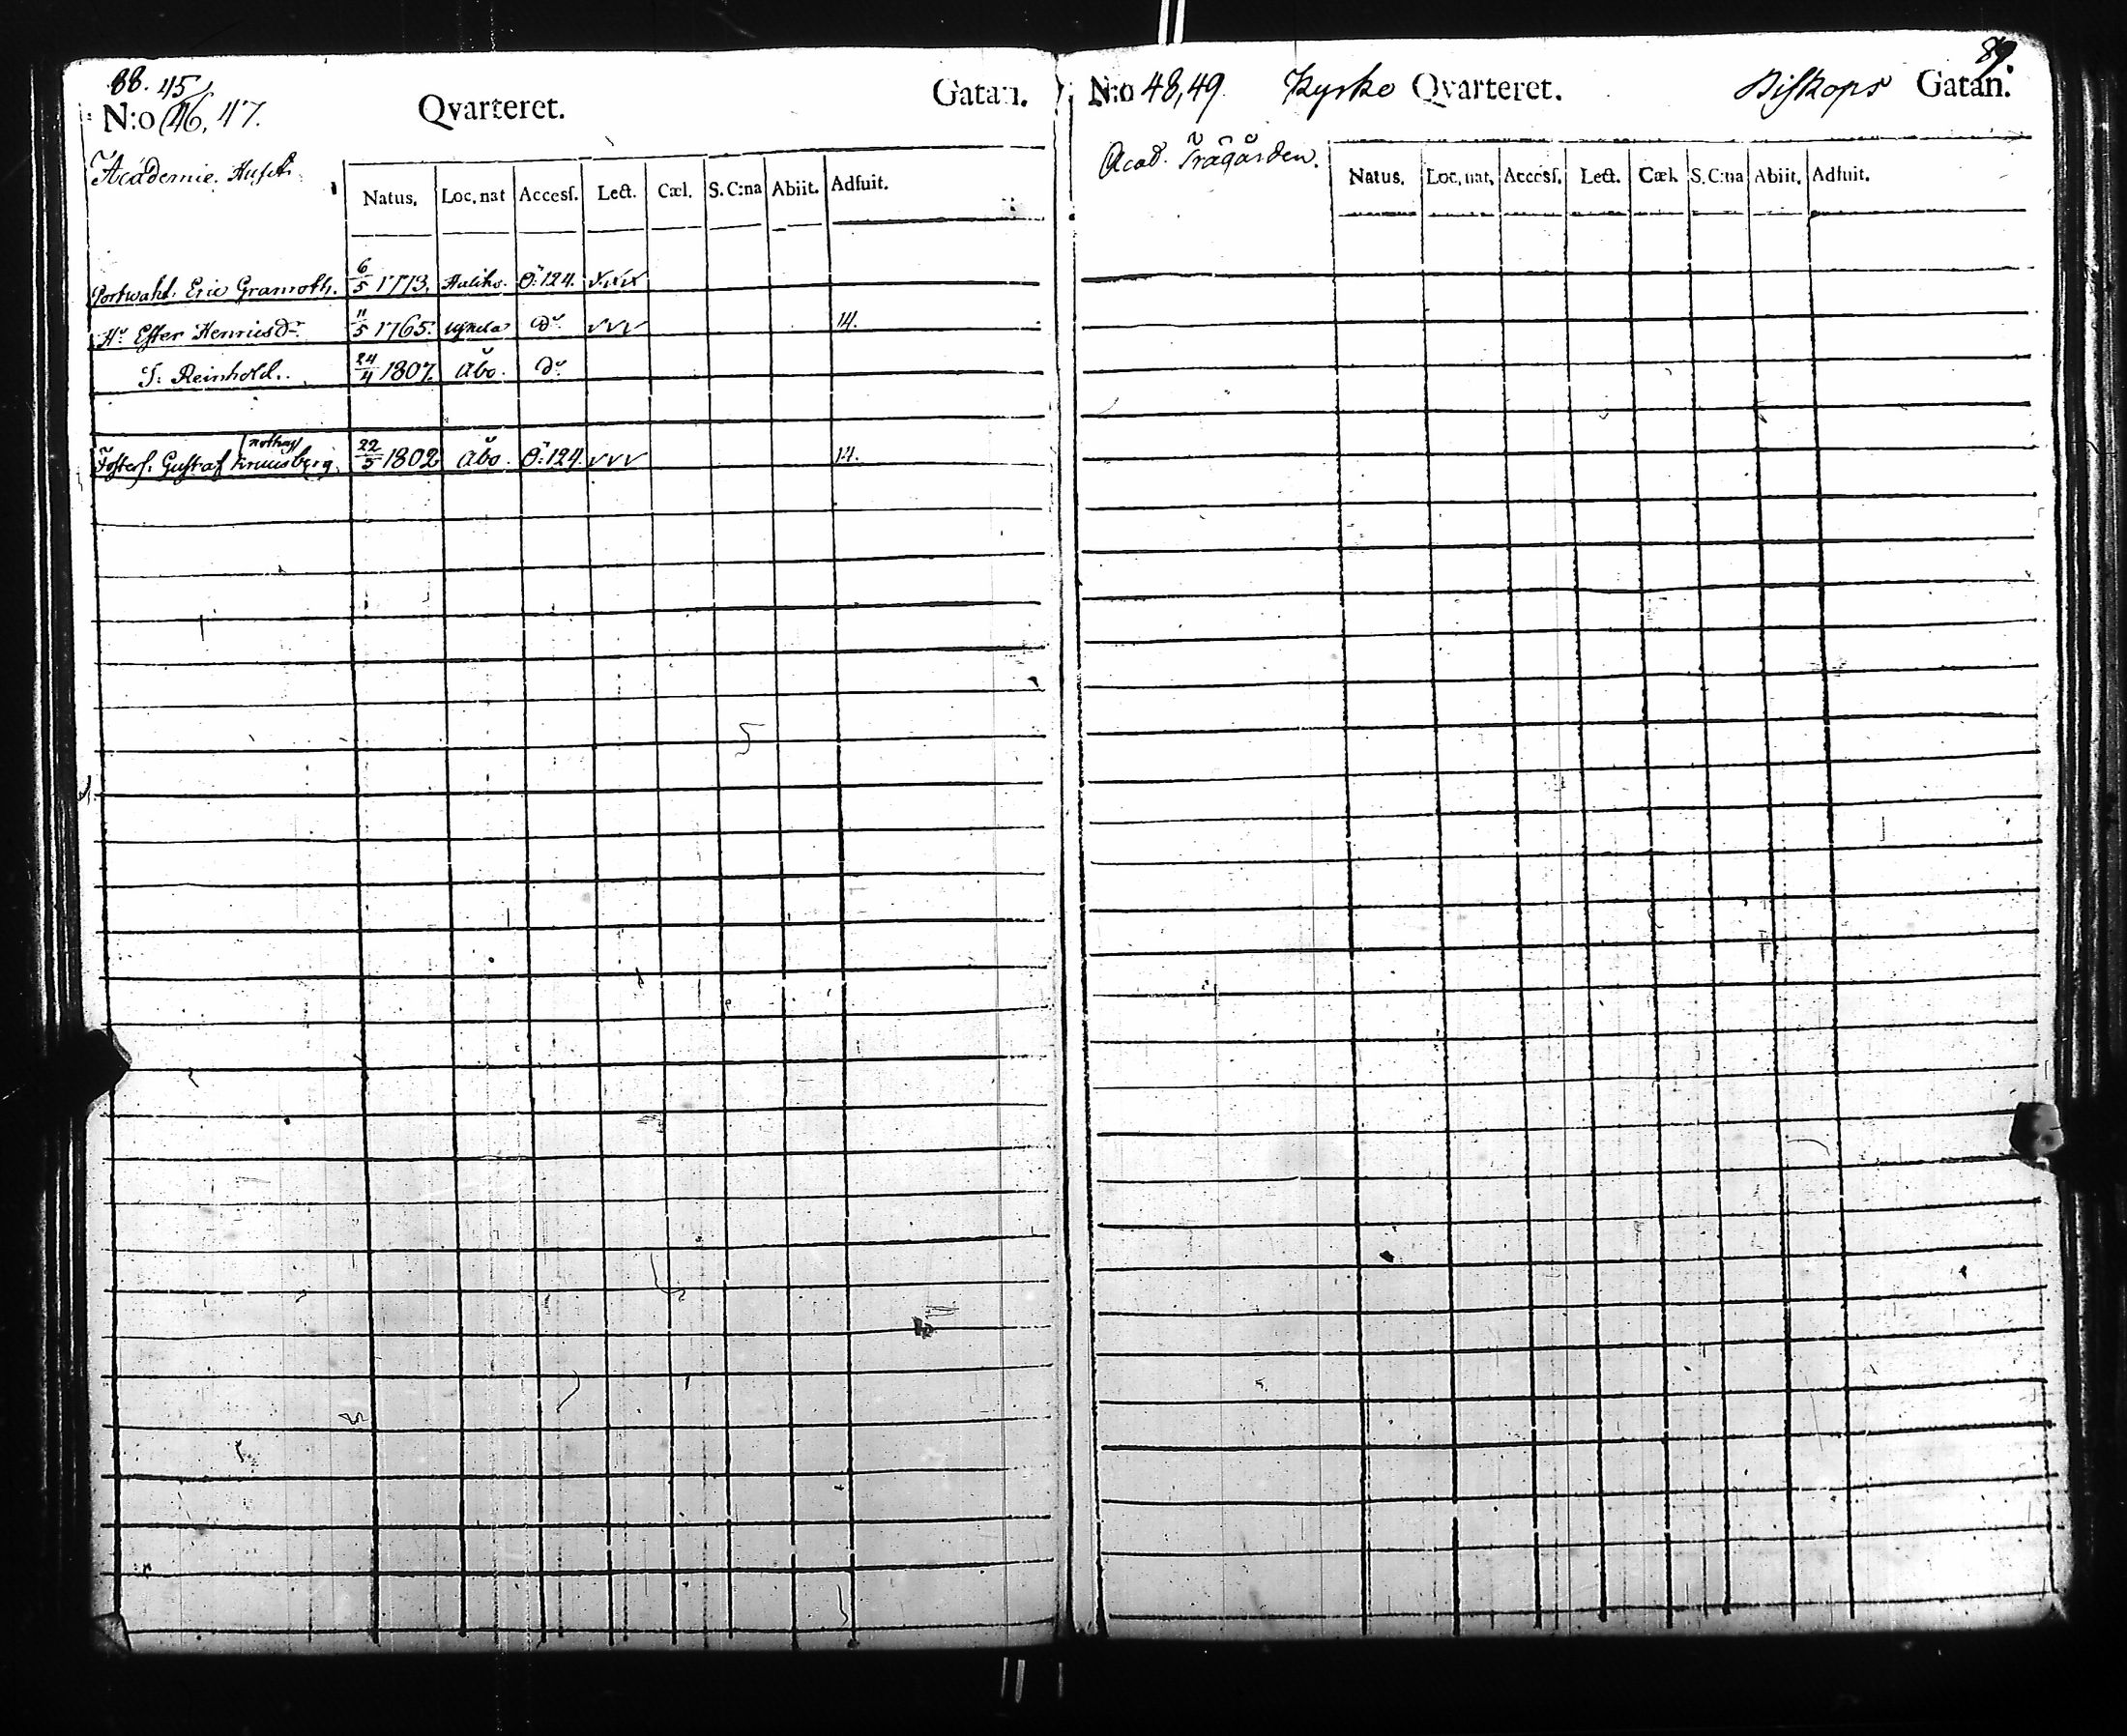 88. 45,
N:o 46, 47. Qvarteret. Gatan.
Academie Huset.
Natus. Loc. nat Accesſ. Lect. Cæl. S. C:na Abiit. Adfuit.
Portwakt. Eric Granroth. 6/5 1773. Haliko. Ö:124. v.v.v
Hu Ester Henricsdr 11/5 1765. do vvv 14.
S: Reinhold. 24/4 1807. Åbo. do
(nothus)
Fosters. Gustaf 22/5 1802 Åbo. Ö:124. vvv 14.
89.
N:o 48, 49. Kyrko Qvarteret. Biskops Gatan.
Acad. Trägården.
Natus. Loc. nat. Accesſ. Lect. Cæl. S. C:na Abiit. Adfuit.